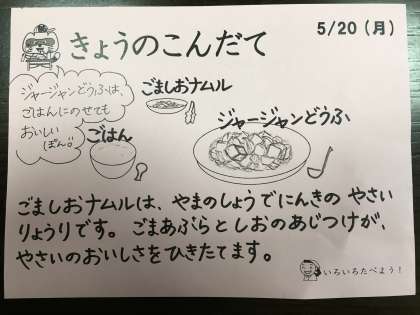 5/20(月)
きょうのこんだて
ジャージャンどうふは、
ごはんにのせても
おいしい
ぽん。
ごましおナムル
ジャージャンどうふ
ごはん
ごましおナムルは、やまのしょうでにんきの やさい
りょうりです。ごまあぶらとしおのあじつけが、
やさいのおいしさをひきたてます。
いろいろたべよう!